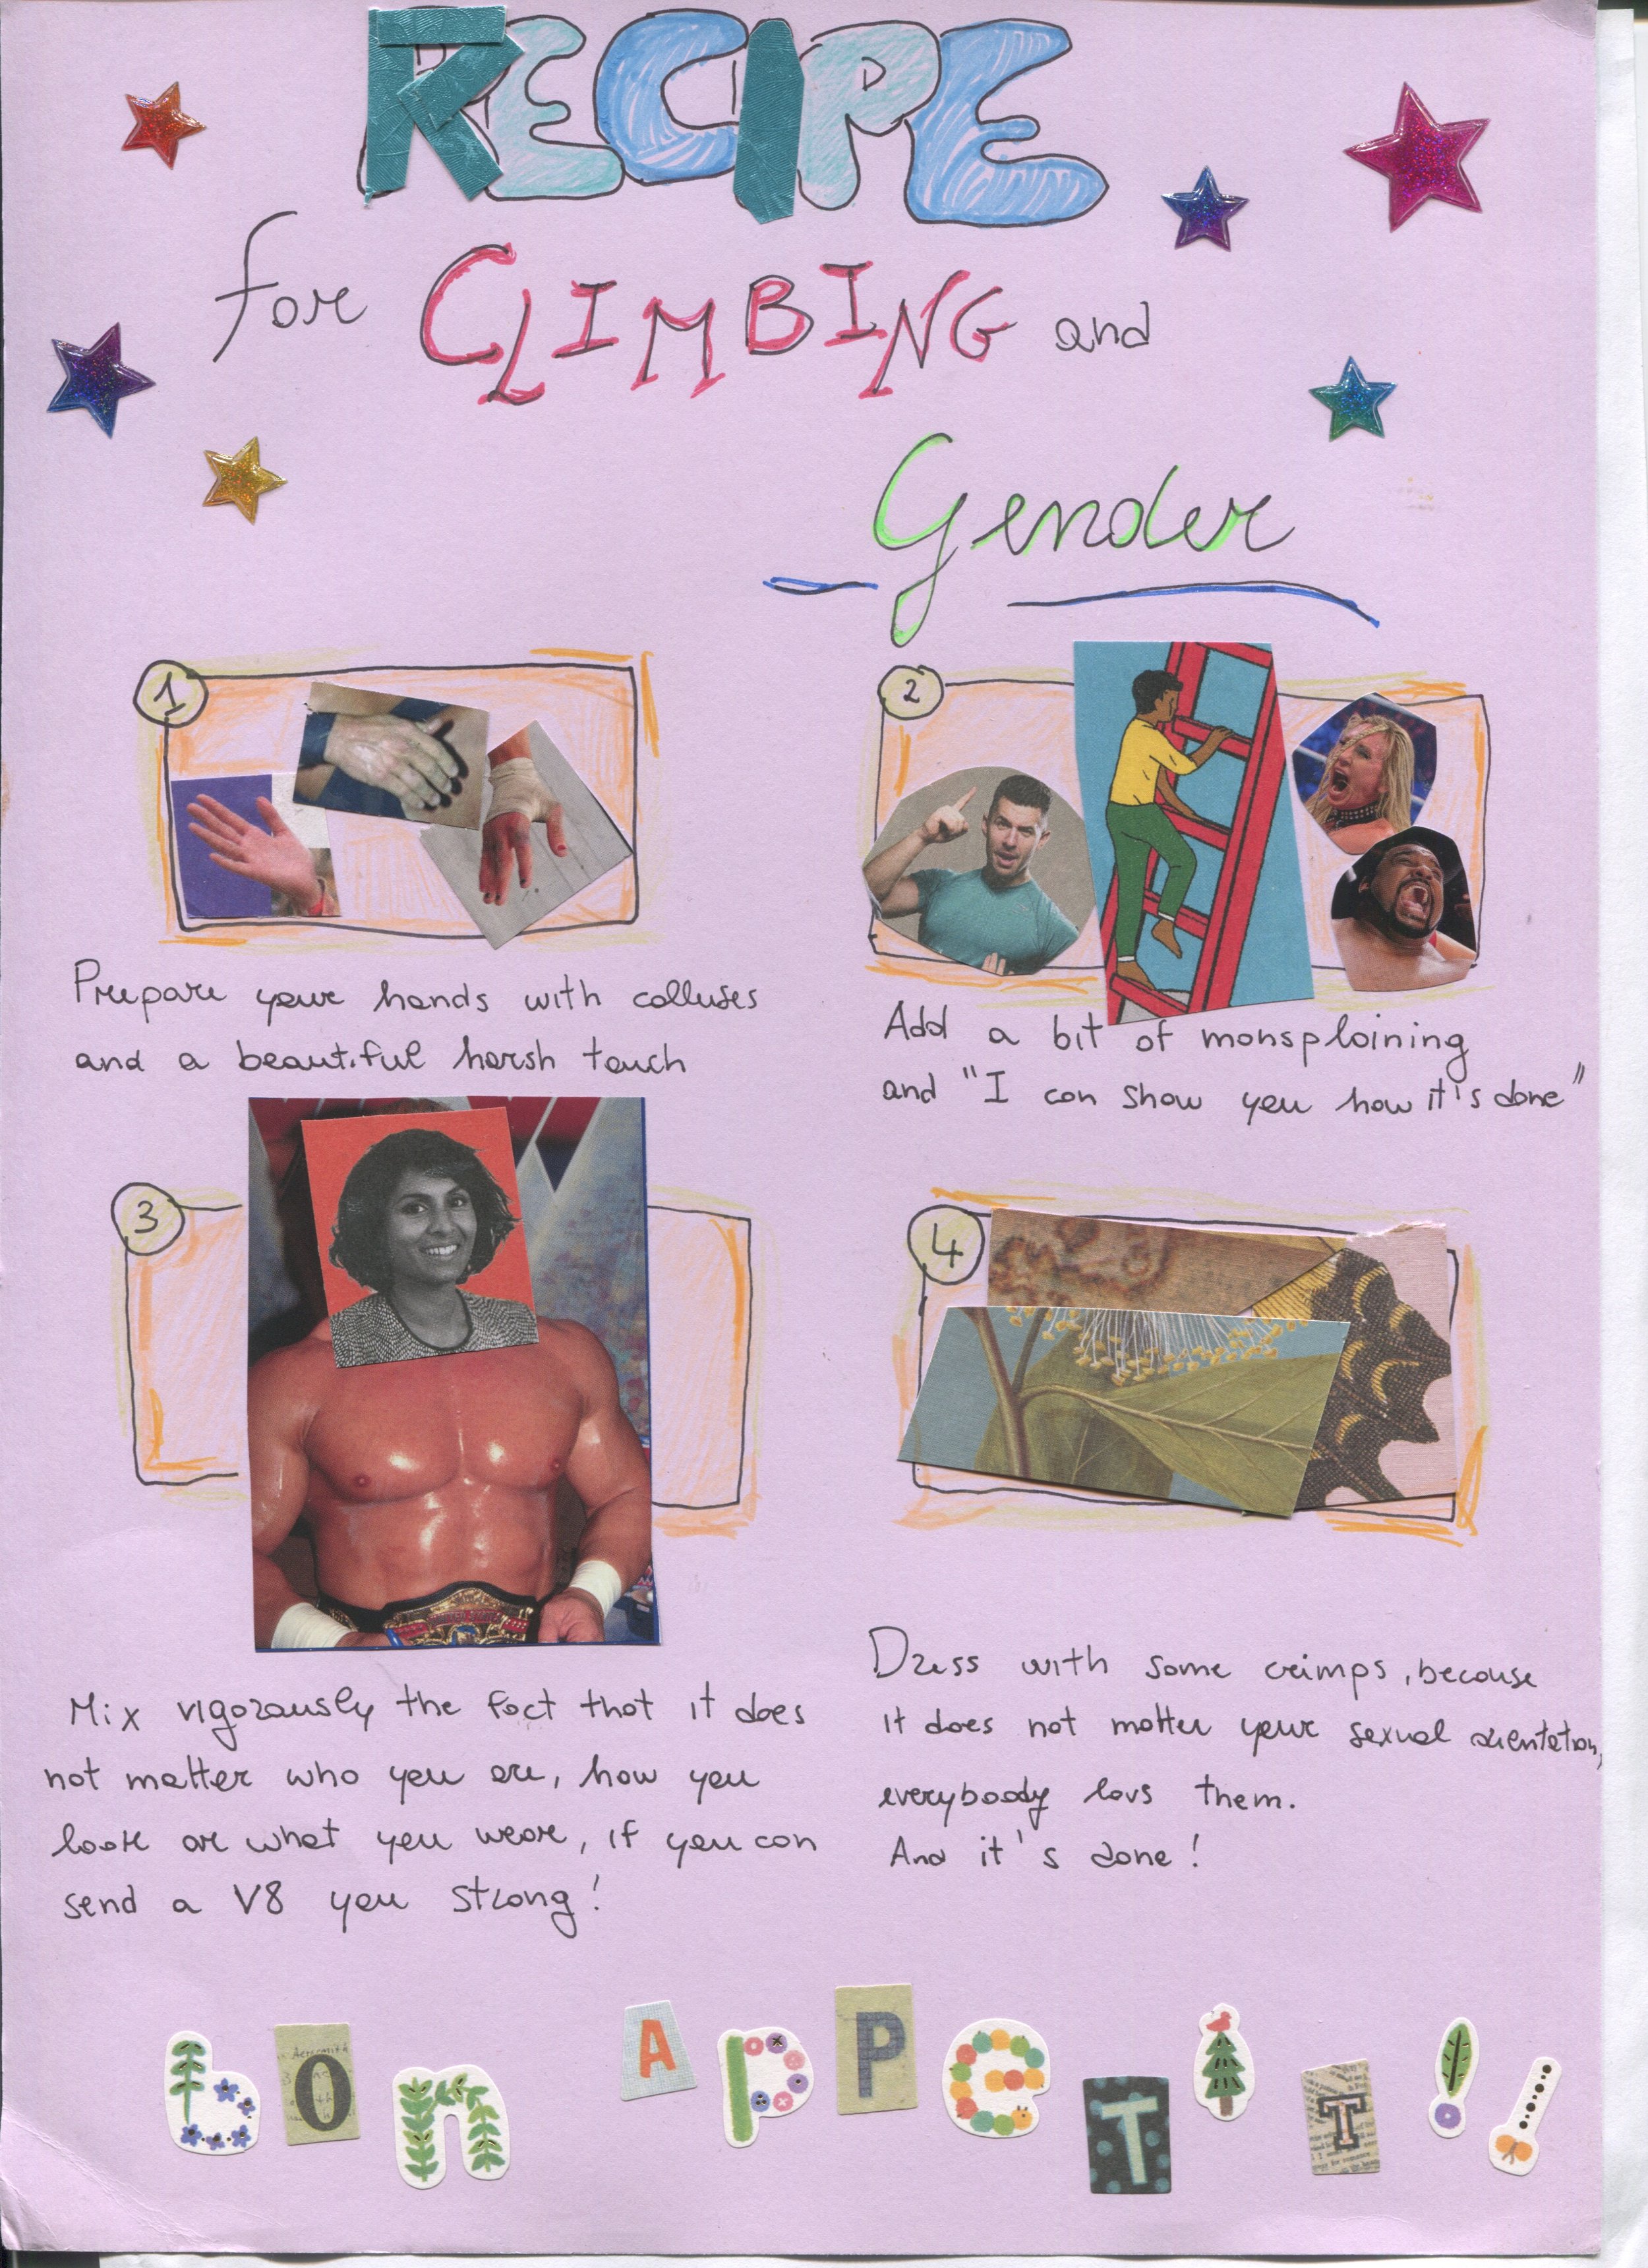 RECIPE
for CLIMBING and
Gender
1
Prepare your hands with calluses
and a beautiful harsh touch
2
Add a bit of mansplaining
and "I can show you how it's done"
3
Mix vigorously the fact that it does
not matter who you are, how you
look or what you wear, if you can
send a V8 you strong!
4
Dress with some crimps, because
it does not matter your sexual orientation,
everybody lovs them.
And it's done!
bOn APPeTiT!!